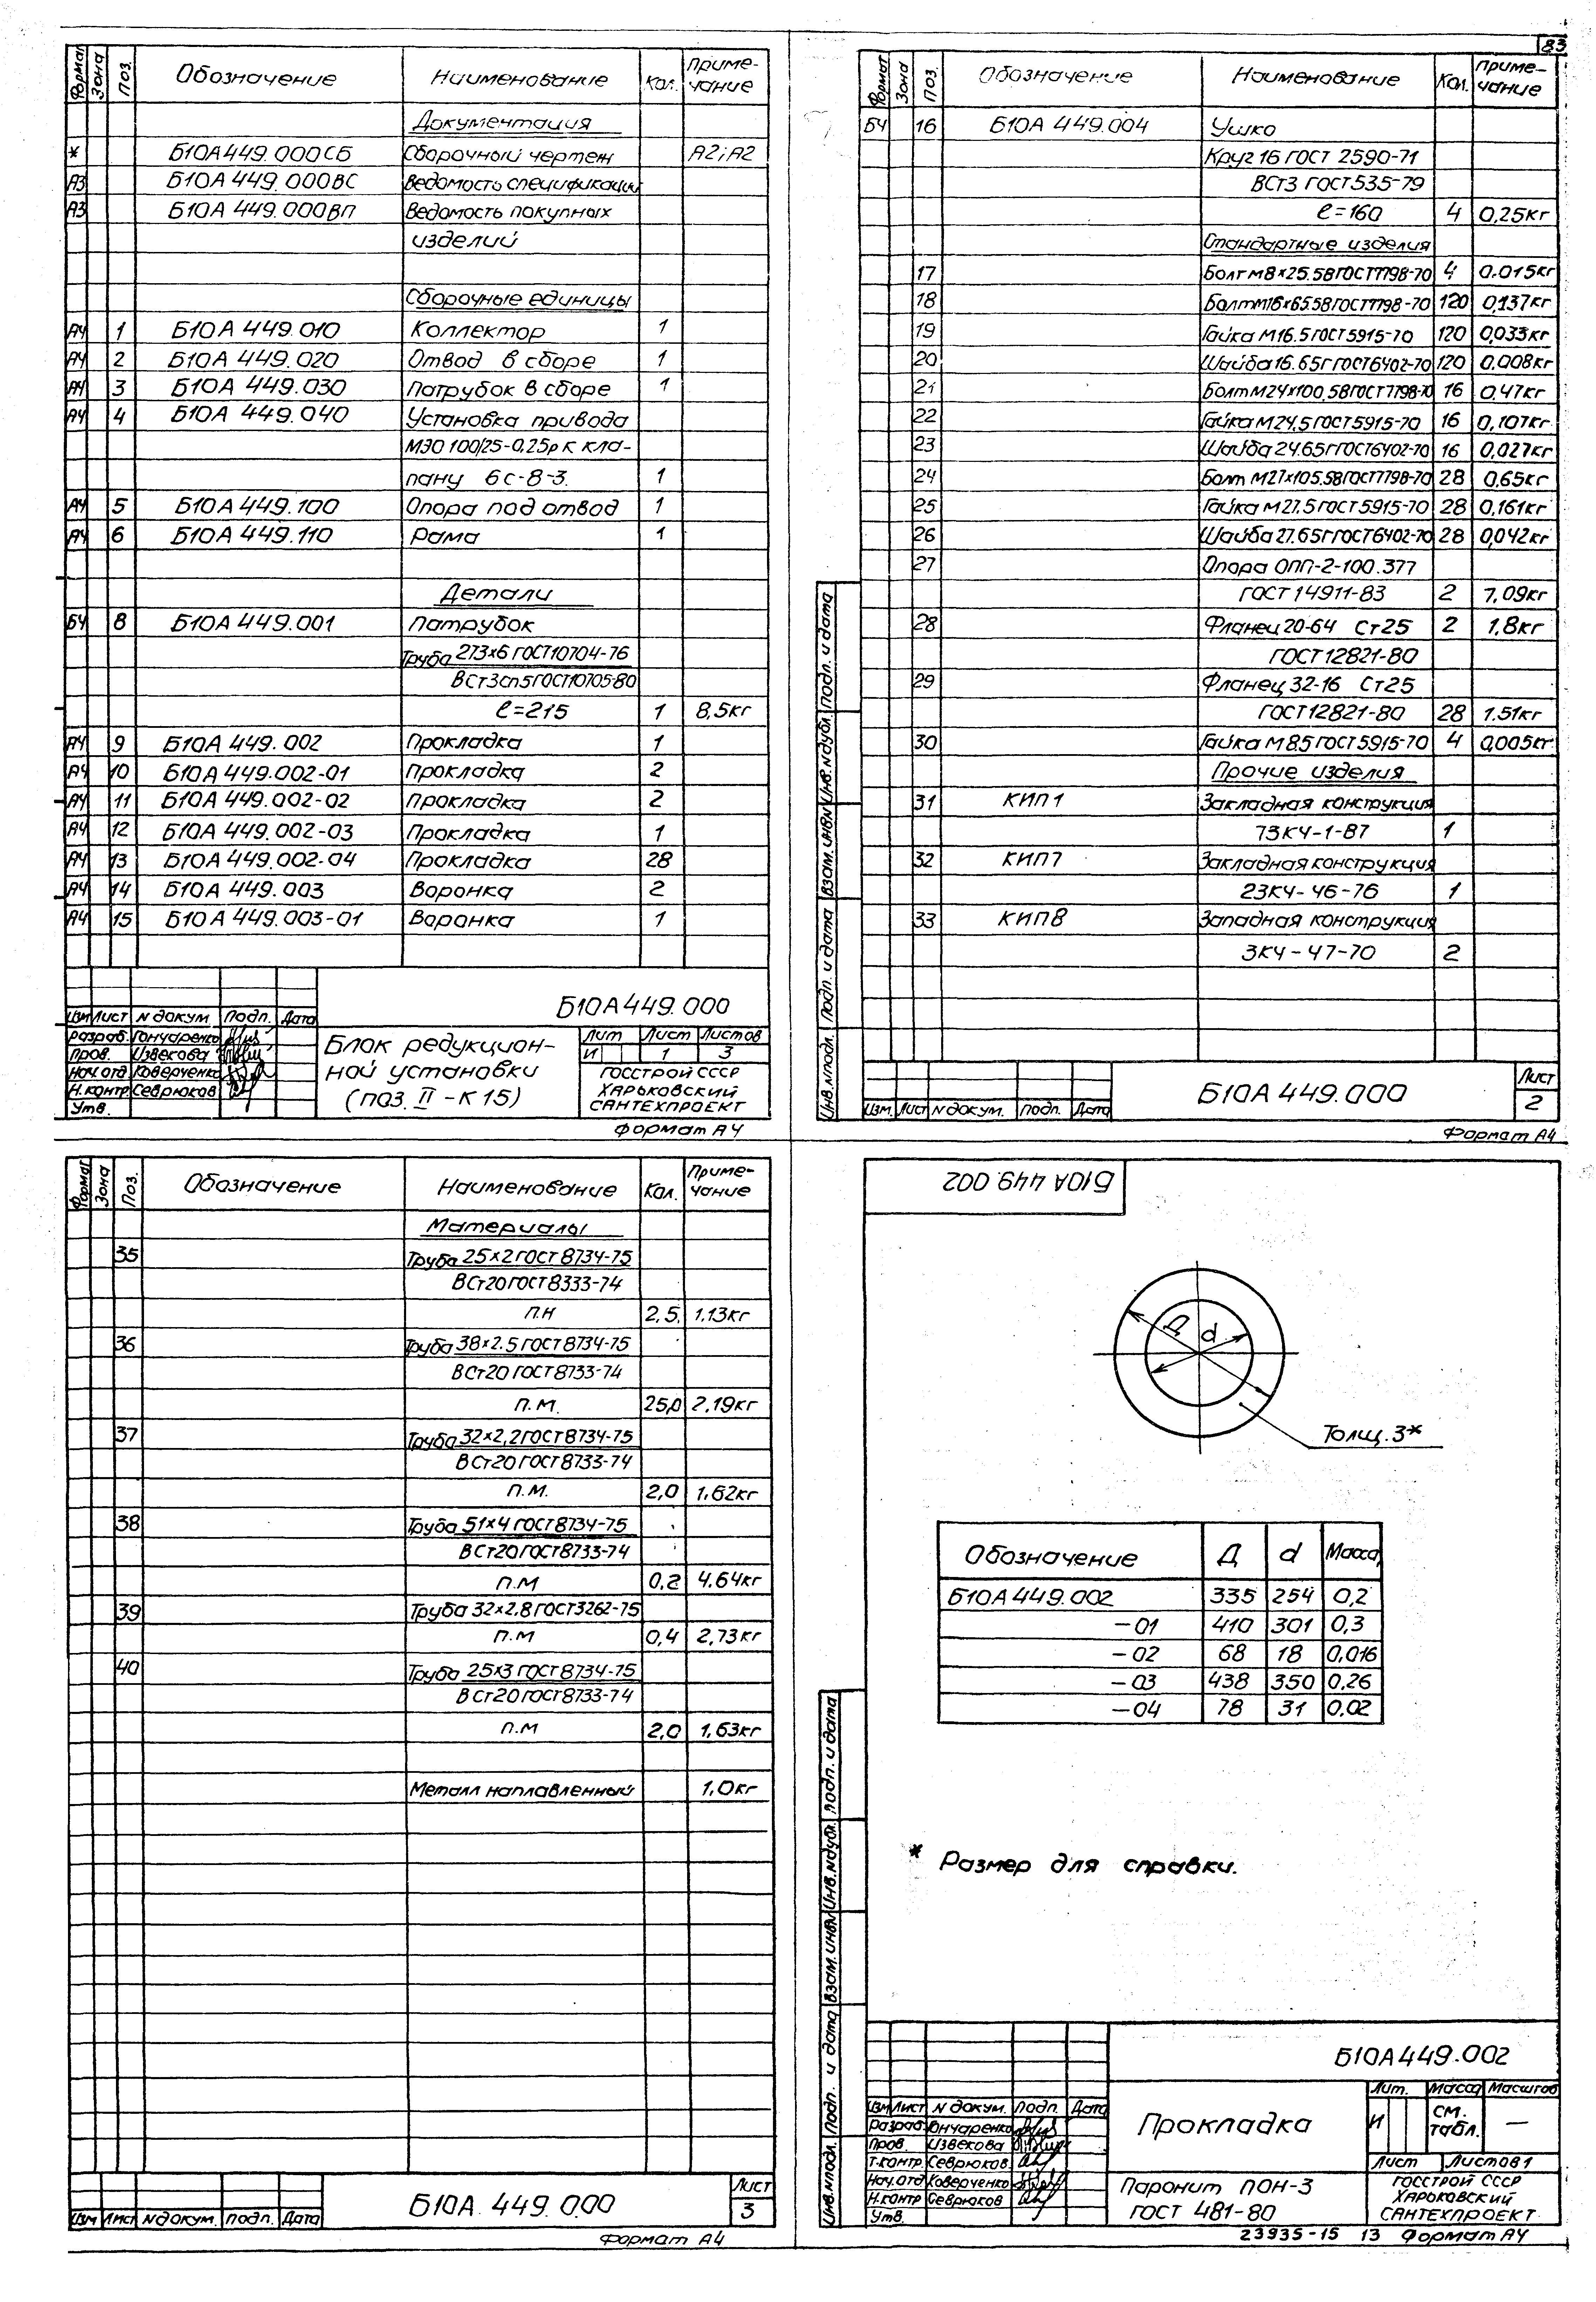 83
Формат Зона Поз. Обозначение Наименование Кол. Приме-
чание
Документация
* Б10А449.000СБ Сборочный чертеж А2;А2
А3 Б10А 449.000ВС Ведомость спецификаций
А3 Б10А 449.000ВП Ведомость покупных
изделий
Сборочные единицы
А4 1 Б10А 449.010 Коллектор 1
А4 2 Б10А 449.020 Отвод в сборе 1
А4 3 Б10А 449.030 Патрубок в сборе 1
А4 4 Б10А 449.040 Установка привода
МЭО 100/25-0,25р к кла-
пану 6с-8-3. 1
А4 5 Б10А 449.100 Опора под отвод 1
А4 6 Б10А 449.110 Рама 1
Детали
БЧ 8 Б10А 449.001 Патрубок
Труба 273х6 ГОСТ10704-76
ВСт3сп5ГОСТ10705-80
ℓ=215 1 8,5кг
А4 9 Б10А 449.002 Прокладка 1
А4 10 Б10А 449.002-01 Прокладка 2
А4 11 Б10А 449.002-02 Прокладка 2
А4 12 Б10А 449.002-03 Прокладка 1
А4 13 Б10А 449.002-04 Прокладка 28
А4 14 Б10А 449.003 Воронка 2
А4 15 Б10А 449.003-01 Воронка 1
Б10А449.000
Изм Лист N докум Подп. Дата
Разраб. Гончаренко
Пров. Извекова
Нач.отд Коверченко
Н.контр Севрюков
Утв.
Блок редукцион-
ной установки
(поз. II - К 15)
Лит Лист Листов
И 1 3
ГОССТРОЙ СССР
ХАРЬКОВСКИЙ
САНТЕХПРОЕКТ
Формат А4
Формат Зона Поз. Обозначение Наименование Кол. Приме-
чание
БЧ 16 Б10А 449.004 Ушко
Круг 16 ГОСТ 2590-71
ВСт3 ГОСТ535-79
ℓ=160 4 0,25кг
Стандартные изделия
17 Болт М8×25.58ГОСТ7798-70 4 0.015кг
18 Болт М16×65.58ГОСТ7798-70 120 0,137кг
19 Гайка М16.5 ГОСТ5915-70 120 0,033кг
20 Шайба16.65Г ГОСТ6402-70 120 0.008кг
21 Болт М24×100.58ГОСТ7798-70 16 0,47кг
22 Гайка М24.5 ГОСТ5915-70 16 0,107кг
23 Шайба 24.65Г ГОСТ6402-70 16 0,027кг
24 Болт М27×105.58ГОСТ7798-70 28 0,65кг
25 Гайка М27.5 ГОСТ5915-70 28 0,161кг
26 Шайба 27.65Г ГОСТ6402-70 28 0,042кг
27 Опора ОПП-2-100.377
ГОСТ 14911-83 2 7,09кг
28 Фланец 20-64 Ст25 2 1,8кг
ГОСТ 12821-80
29 Фланец 32-16 Ст25
ГОСТ12821-80 28 1.51кг
30 Гайка М8.5 ГОСТ5915-70 4 0,005кг
Прочие изделия
31 КИП1 Закладная конструкция
73КЧ-1-87 1
32 КИП7 Закладная конструкция
23КЧ-46-76 1
33 КИП8 Западная конструкция
3КЧ-47-70 2
Инв.№подл. Подп. и дата Взам.инв№ Инв.№дубл. Подп. и дата
Изм. Лист N докум. Подп. Дата
Б10А 449.000
Лист
2
Формат А4
Формат Зона Поз. Обозначение Наименование Кол. Приме-
чание
Материалы
35 Труба 25×2ГОСТ8734-75
ВСт20ГОСТ8333-74
п.н 2,5. 1.13кг
36 Труба 38×2.5 ГОСТ8734-75
ВСт20 ГОСТ8733-74
п.м. 25,0 2,19кг
37 Труба 32×2,2ГОСТ8734-75
ВСт20ГОСТ8733-74
п.м. 2,0 1,62кг
38 Труба 51×4 ГОСТ8734-75
ВСт20ГОСТ8733-74
п.м 0,2 4.64кг
39 Труба 32×2,8 ГОСТ3262-75
п.м 0,4 2,73кг
40 Труба 25х3 ГОСТ8734-75
ВСт20ГОСТ8733-74
п.м 2,0 1,63кг
Металл наплавленный 1,0кг
Изм Лист N докум. Подп. Дата
Б10А 449.000
Лист
3
Формат А4
Б10А 449.002
Д d
Толщ.3*
Обозначение Д d Масса,
Б10А449.002 335 254 0,2
-01 410 301 0,3
-02 68 18 0,016
-03 438 350 0,26
-04 78 31 0,02
* Размер для справки.
Инв.№подл. Подп. и дата Взам.инв№ Инв.№дубл. Подп. и дата
Б10А449.002
Изм Лист N докум. Подп. Дата
Разраб. Гончаренко
Пров. Извекова
Т.контр. Севрюков
Нач.отд Коверченко
Н.контр Севрюков
Утв.
Прокладка
Лит. Масса Масштаб
И см. табл. —
Лист Листов1
Паронит ПОН-3
ГОСТ 481-80
ГОССТРОЙ СССР
ХАРЬКОВСКИЙ
САНТЕХПРОЕКТ
23935-15 13 Формат А4